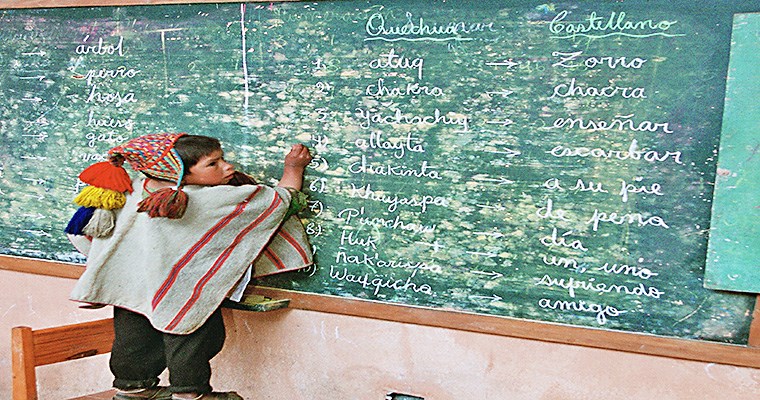 árbol
perro
hoja
hueso
gato
Quechua Castellano
1. atuq → zorro
2. chakra → chacra
3. yachachiy → enseñar
4. allayta → escarbar
5) chakinta → a su pie
6) Khuyaspa → de pena
7) P'unchaw → día
8) Huk → un, uno
ñakarispa → sufriendo
Wayqicha → amigo